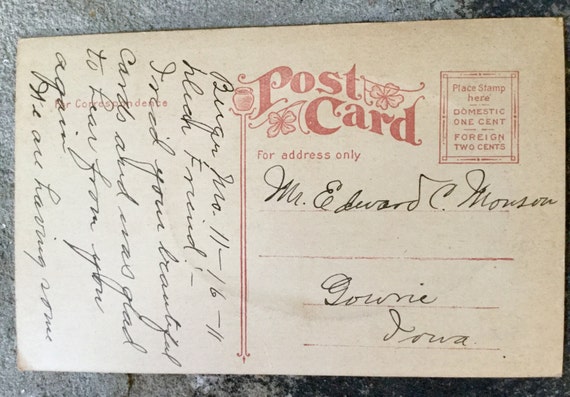 Post
Card
Place Stamp
here
DOMESTIC
ONE CENT
FOREIGN
TWO CENTS
For Correspondence
For address only
Mr. Edward C. Monson
Gowrie
Iowa.
11-16-11
Friend:-
I recd your beautiful
Cards and was glad
to hear from you
again
We are having some